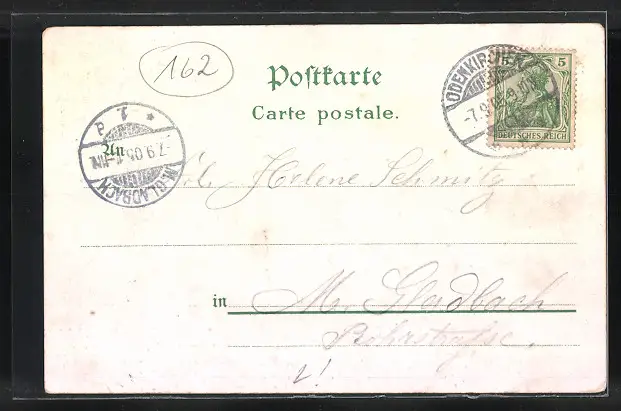 162
Postkarte
Carte postale.
ODENKIRCHEN
-7.9.05
5
DEUTSCHES REICH
M.GLADBACH
-7.9.05.1-
An
Frl. Helene Schmitz
in M. Gladbach
Rohrstrasse.